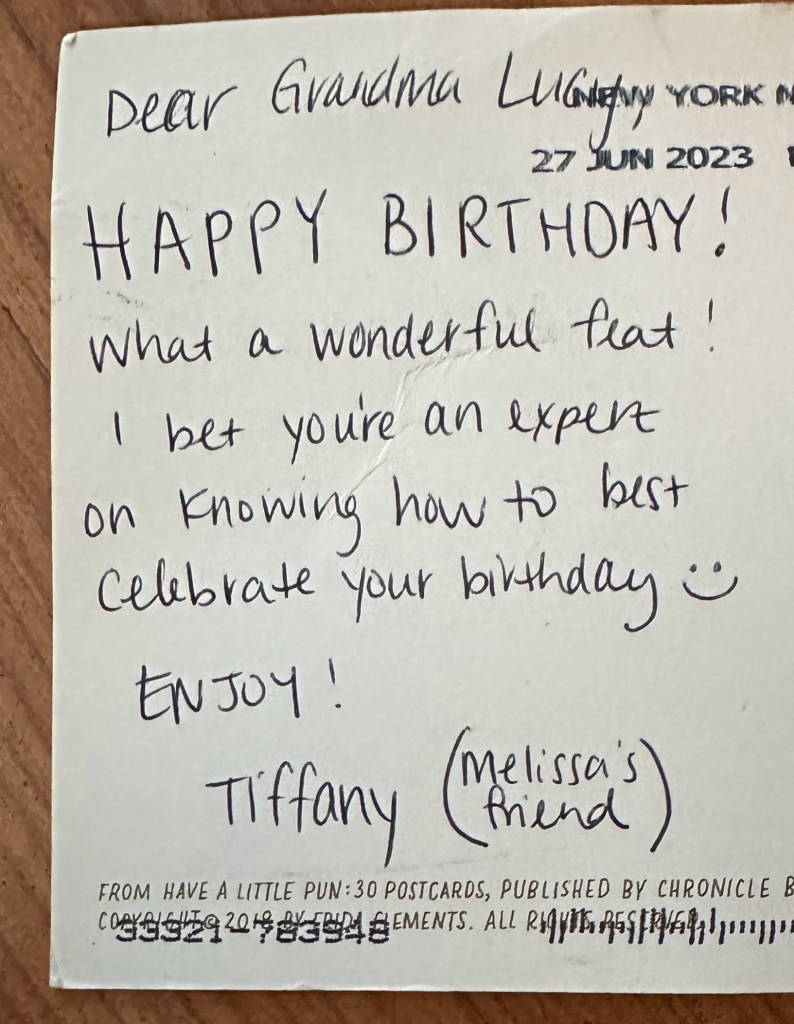 Dear Grandma Lucy
NEW YORK N
27 JUN 2023
HAPPY BIRTHDAY!
What a wonderful feat!
I bet you're an expert
on knowing how to best
celebrate your birthday :)
ENJOY!
Tiffany (Melissa's
friend)
FROM HAVE A LITTLE PUN: 30 POSTCARDS, PUBLISHED BY CHRONICLE B
COPYRIGHT © 2018 BY FRIDA CLEMENTS. ALL RIGHTS RESERVED.
33321-783948